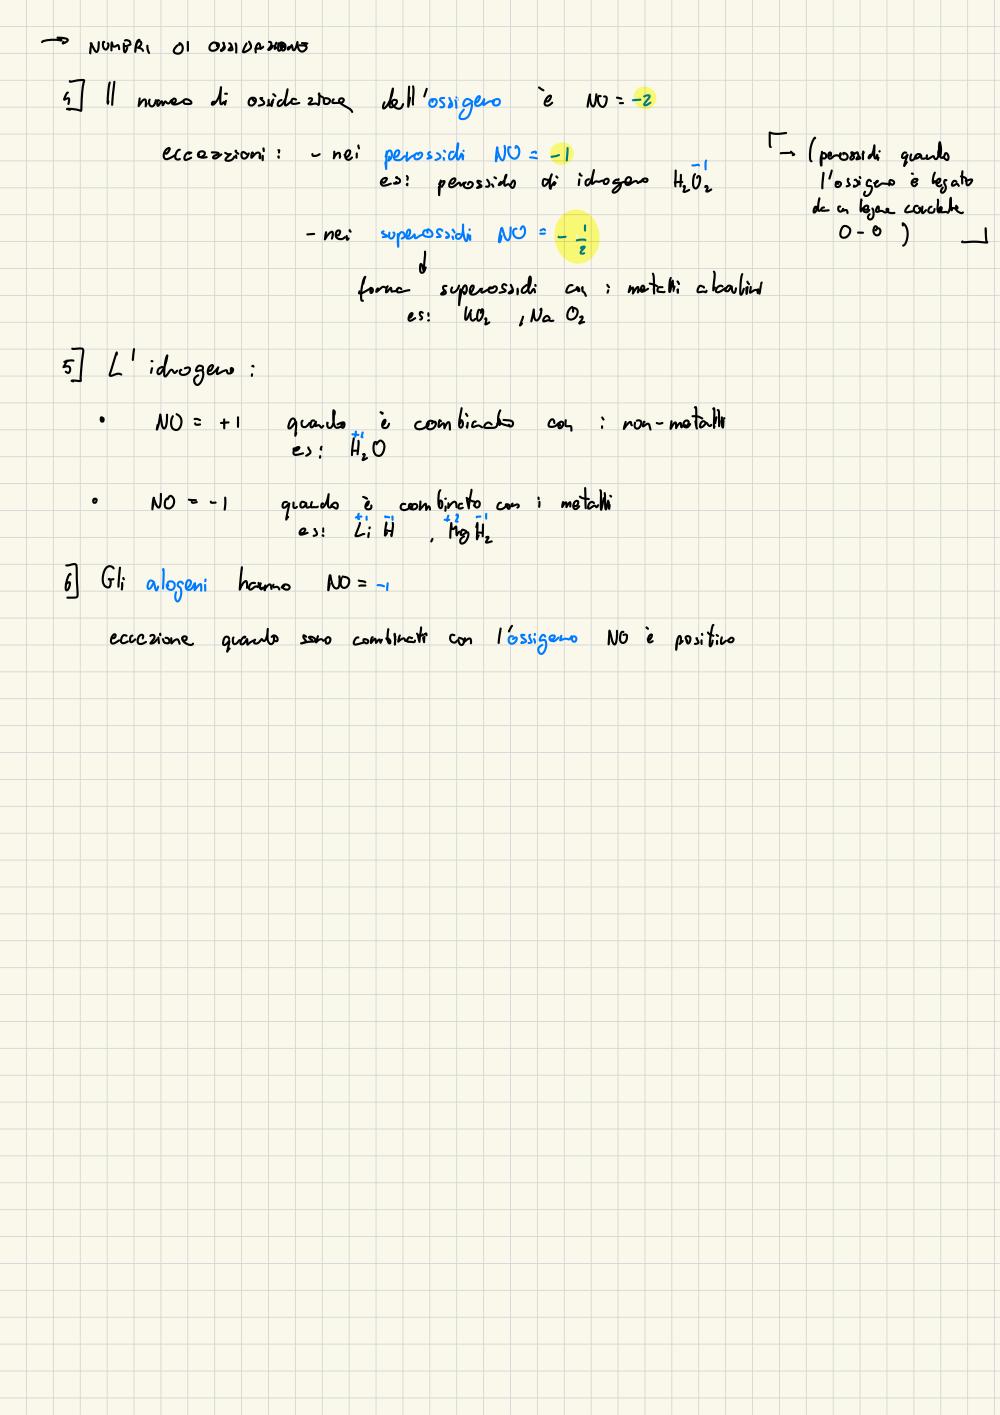 → NUMERI DI OSSIDAZIONE
4] Il numero di ossidazione dell'ossigeno è NO = -2
eccezzioni: - nei perossidi NO = -1
es: perossido di idrogeno H₂O₂ -1
→ (perossidi quando
l'ossigeno è legato
da un legame covalente
O - O )
- nei superossidi NO = - 1/2
↓
forma superossidi con i metalli alcalini
es: KO₂ , NaO₂
5] L'idrogeno:
• NO = +1 quando è combinato con i non-metalli
es: H₂O +1
• NO = -1 quando è combinato con i metalli
+1 -1 +2 -1
es: Li H , Mg H₂
6] Gli alogeni hanno NO = -1
eccezione quando sono combinati con l'ossigeno NO è positivo